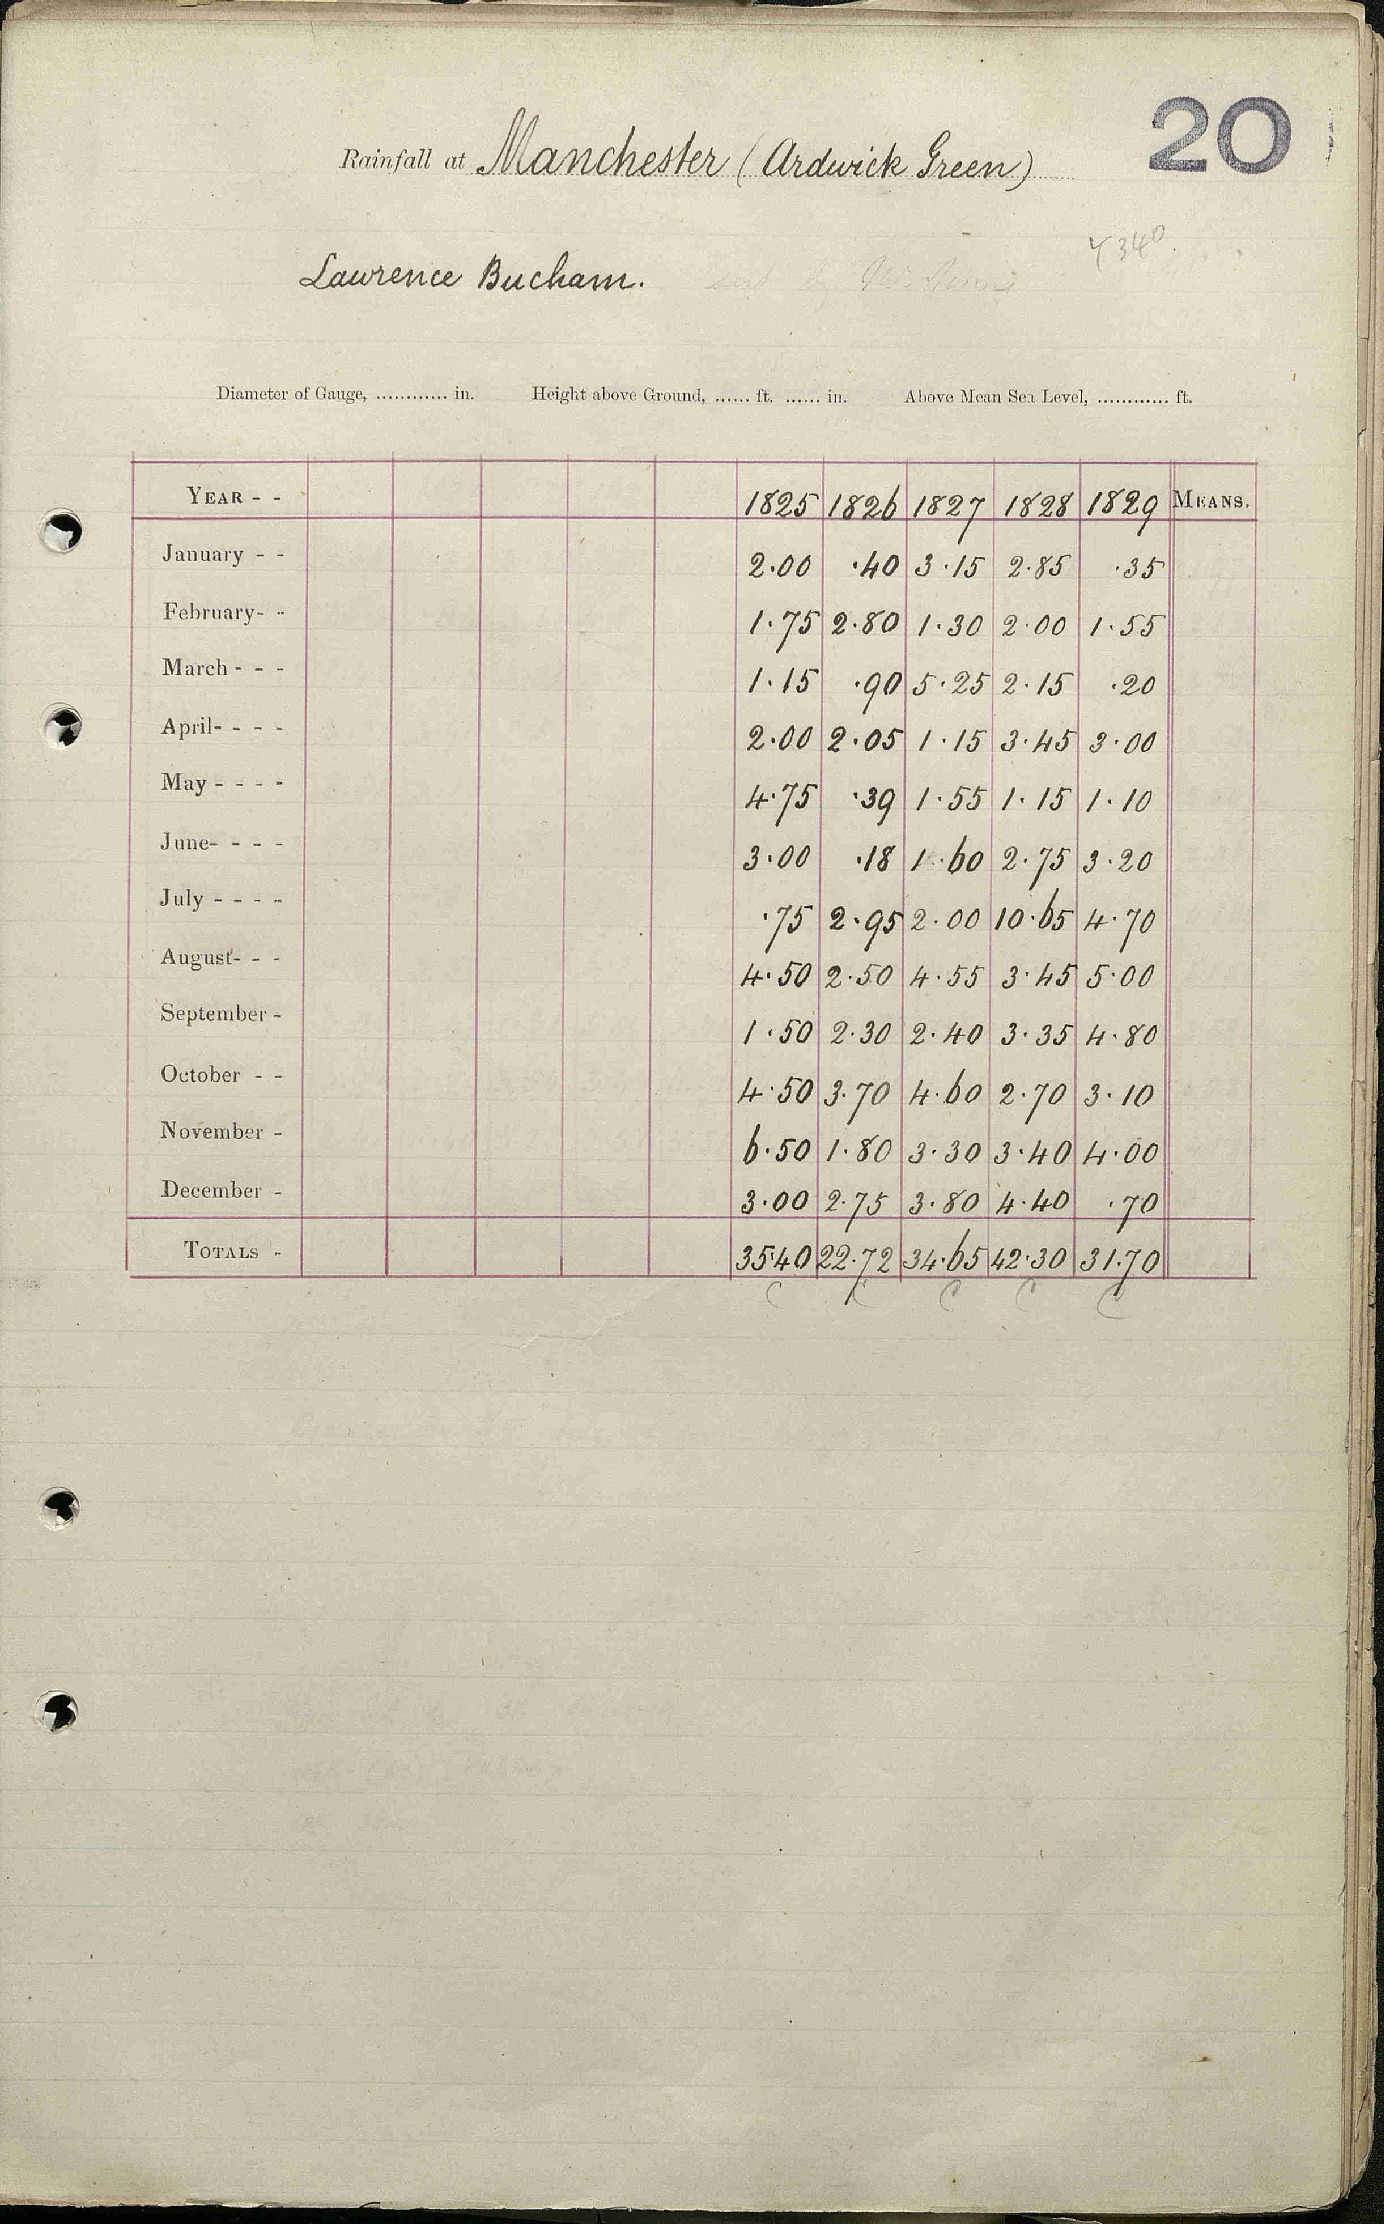 20
Rainfall at Manchester (Ardwick Green)
4340
Lawrence Bucham. sent by Mr.
Diameter of Gauge, ............ in. Height above Ground, ...... ft. ...... in. Above Mean Sea Level, ............ ft.
YEAR - - 1825 1826 1827 1828 1829 MEANS.
January - - 2.00 .40 3.15 2.85 .35
February- - 1.75 2.80 1.30 2.00 1.55
March - - - 1.15 .90 5.25 2.15 .20
April- - - - 2.00 2.05 1.15 3.45 3.00
May - - - - 4.75 .39 1.55 1.15 1.10
June- - - - 3.00 .18 1.60 2.75 3.20
July - - - - .75 2.95 2.00 10.65 4.70
August- - - 4.50 2.50 4.55 3.45 5.00
September - 1.50 2.30 2.40 3.35 4.80
October - - 4.50 3.70 4.60 2.70 3.10
November - 6.50 1.80 3.30 3.40 4.00
December - 3.00 2.75 3.80 4.40 .70
TOTALS - 35.40 22.72 34.65 42.30 31.70
C C C C C